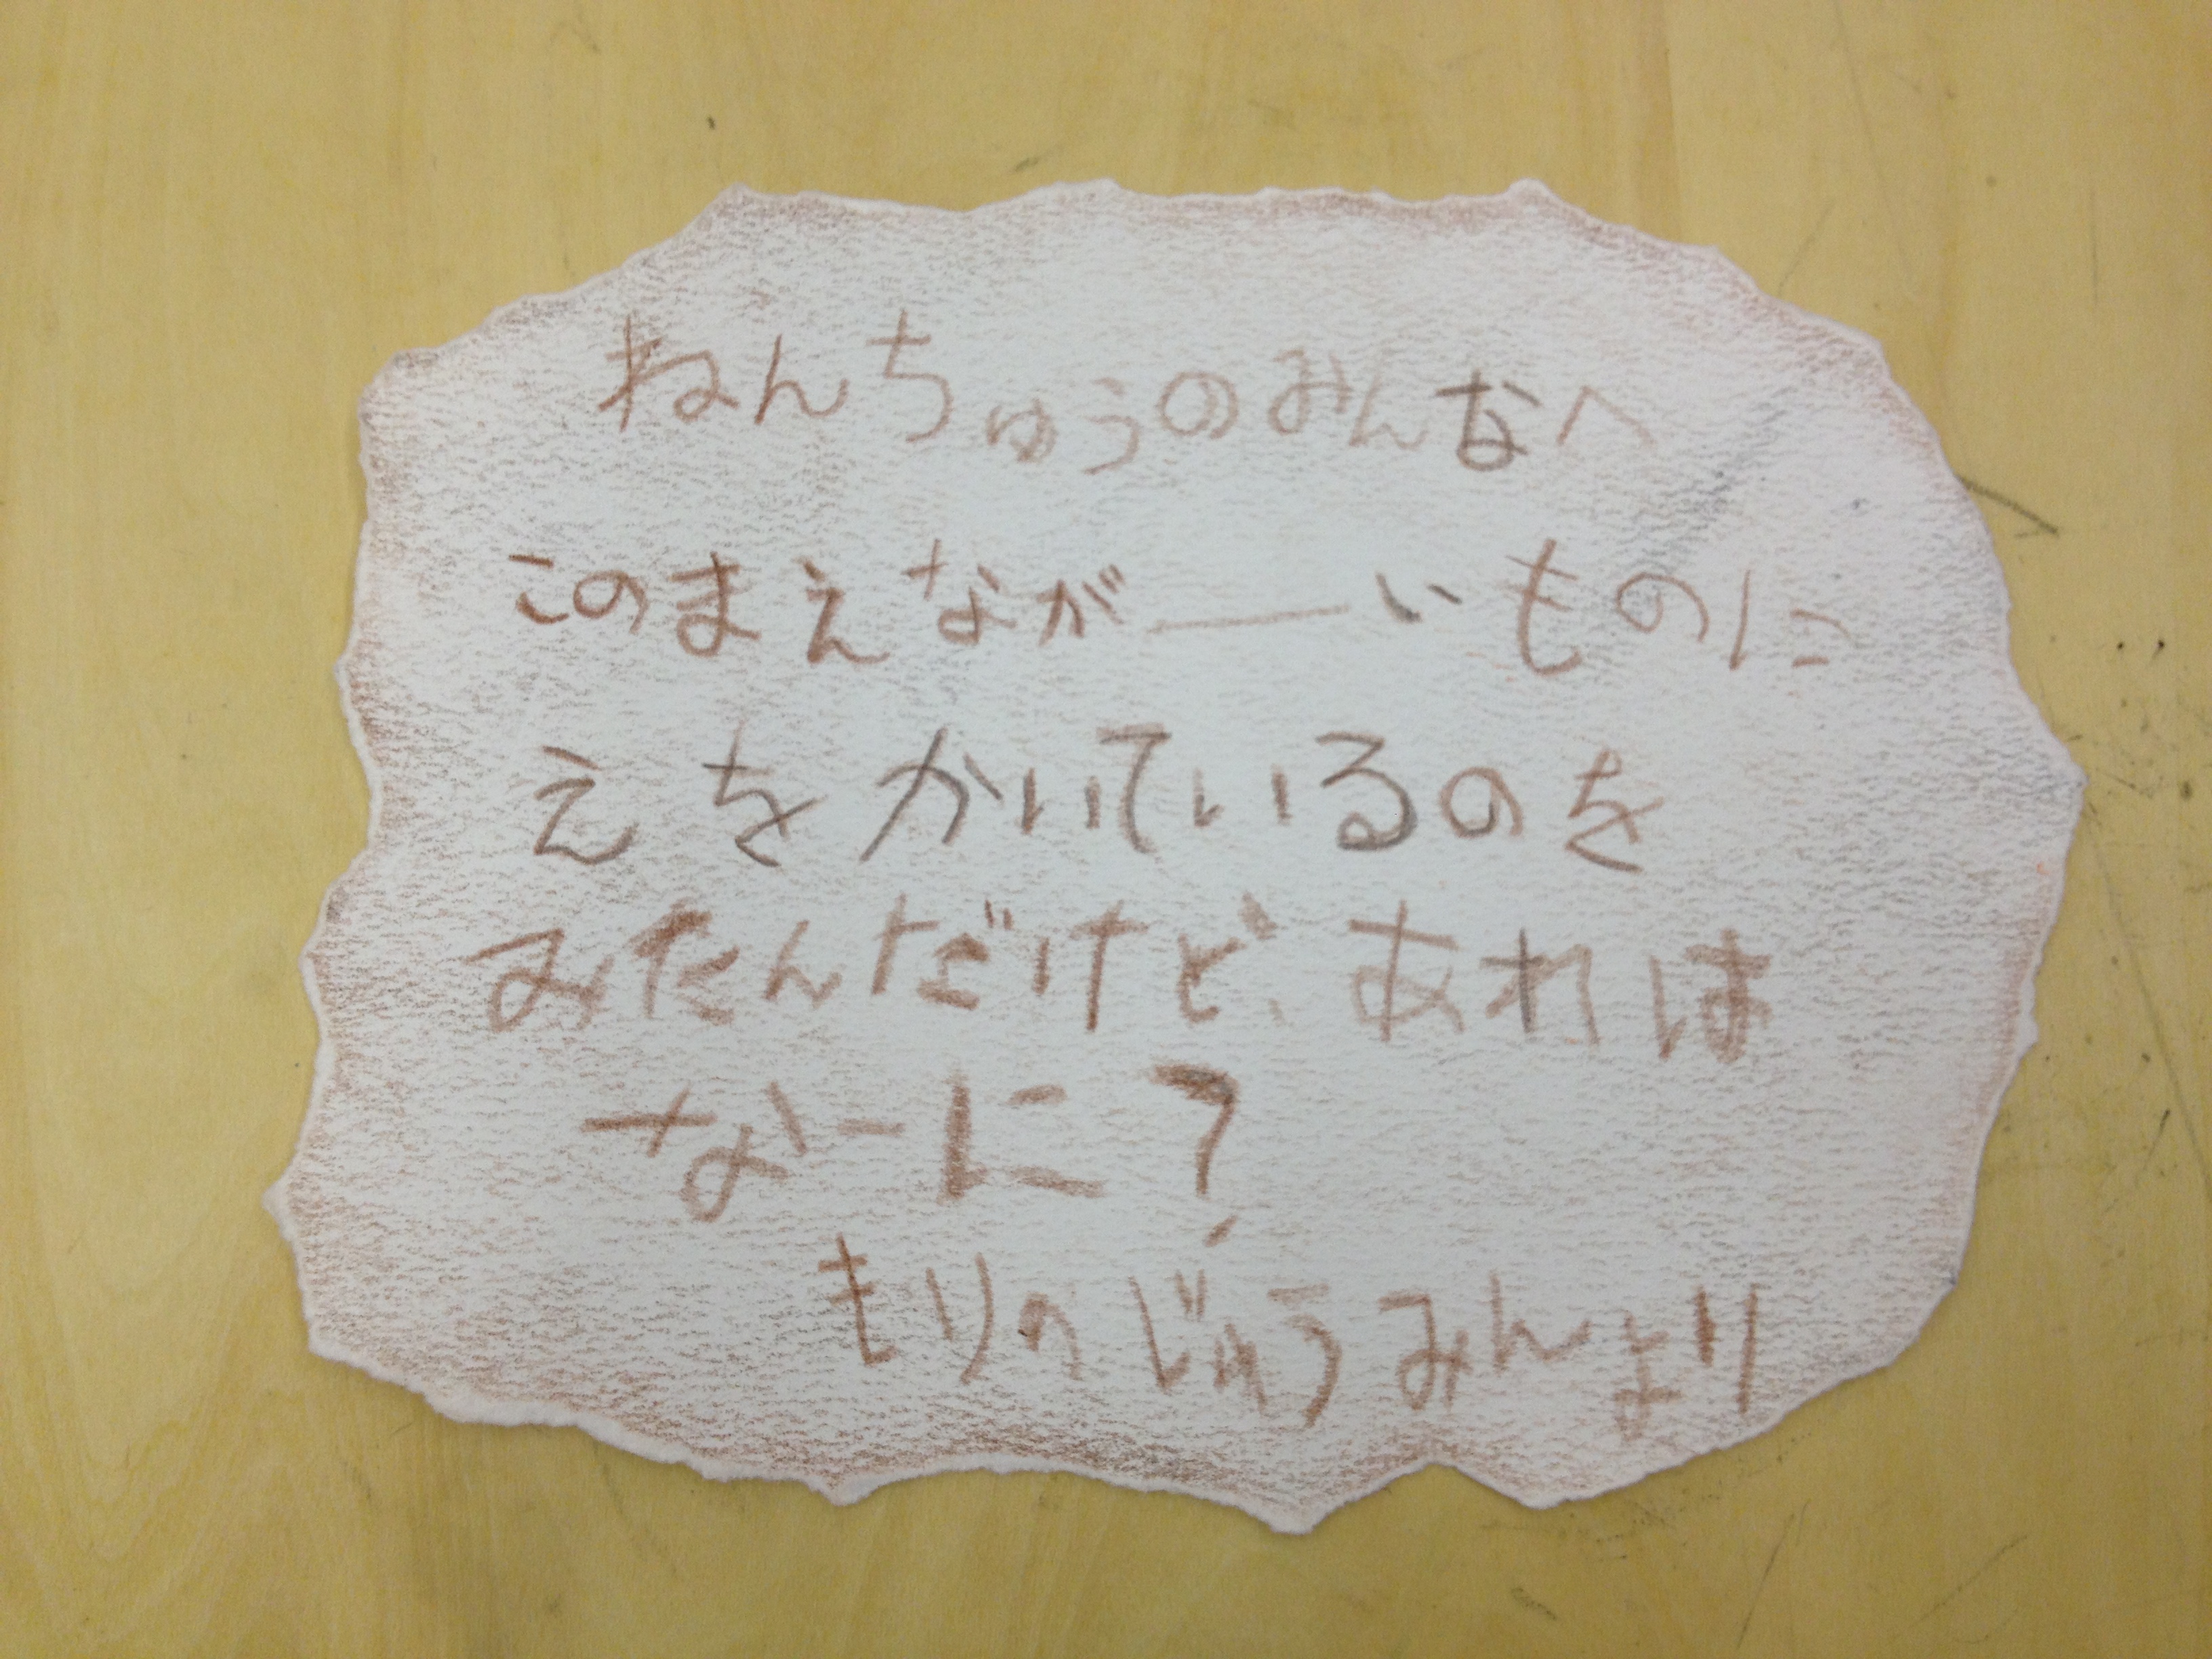 ねんちゅうのみんなへ
このまえなが――いものに
えをかいているのを
みたんだけど、あれは
なーに?
もりのじゅうみんより